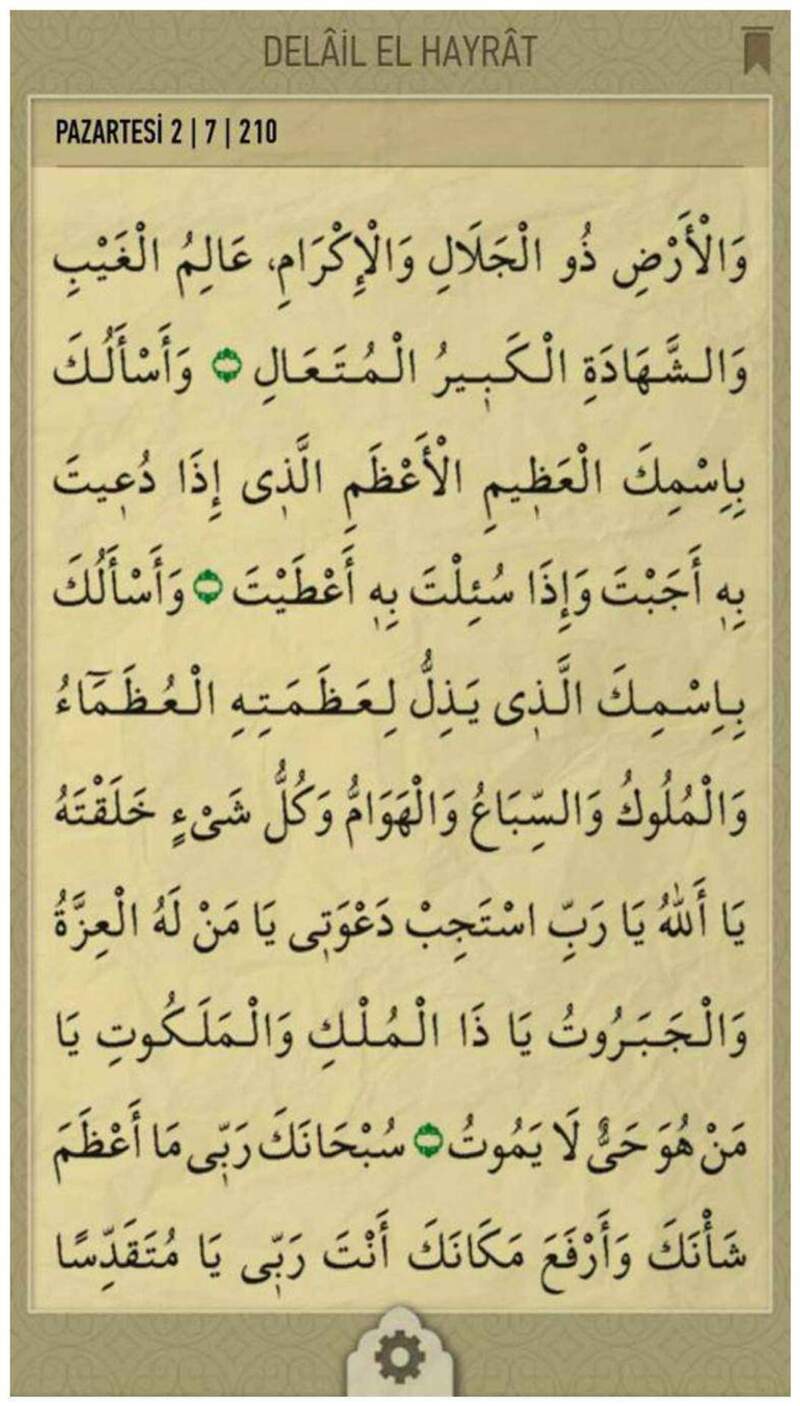 DELÂİL EL HAYRÂT
PAZARTESİ 2 | 7 | 210
وَالْأَرْضِ ذُو الْجَلَالِ وَالْإِكْرَامِ، عَالِمُ الْغَيْبِ
وَالشَّهَادَةِ الْكَبٖيرُ الْمُتَعَالِ ۝ وَأَسْأَلُكَ
بِاِسْمِكَ الْعَظٖيمِ الْأَعْظَمِ الَّذٖى إِذَا دُعٖيتَ
بِهٖ أَجَبْتَ وَإِذَا سُئِلْتَ بِهٖ أَعْطَيْتَ ۝ وَأَسْأَلُكَ
بِاِسْمِكَ الَّذٖى يَذِلُّ لِعَظَمَتِهِ الْعُظَمَٓاءُ
وَالْمُلُوكُ وَالسِّبَاعُ وَالْهَوَامُّ وَكُلُّ شَىْءٍ خَلَقْتَهُ
يَا أَللهُ يَا رَبِّ اسْتَجِبْ دَعْوَتٖى يَا مَنْ لَهُ الْعِزَّةُ
وَالْجَبَرُوتُ يَا ذَا الْمُلْكِ وَالْمَلَكُوتِ يَا
مَنْ هُوَ حَىٌّ لَا يَمُوتُ ۝ سُبْحَانَكَ رَبّٖى مَا أَعْظَمَ
شَأْنَكَ وَأَرْفَعَ مَكَانَكَ أَنْتَ رَبّٖى يَا مُتَقَدِّسًا